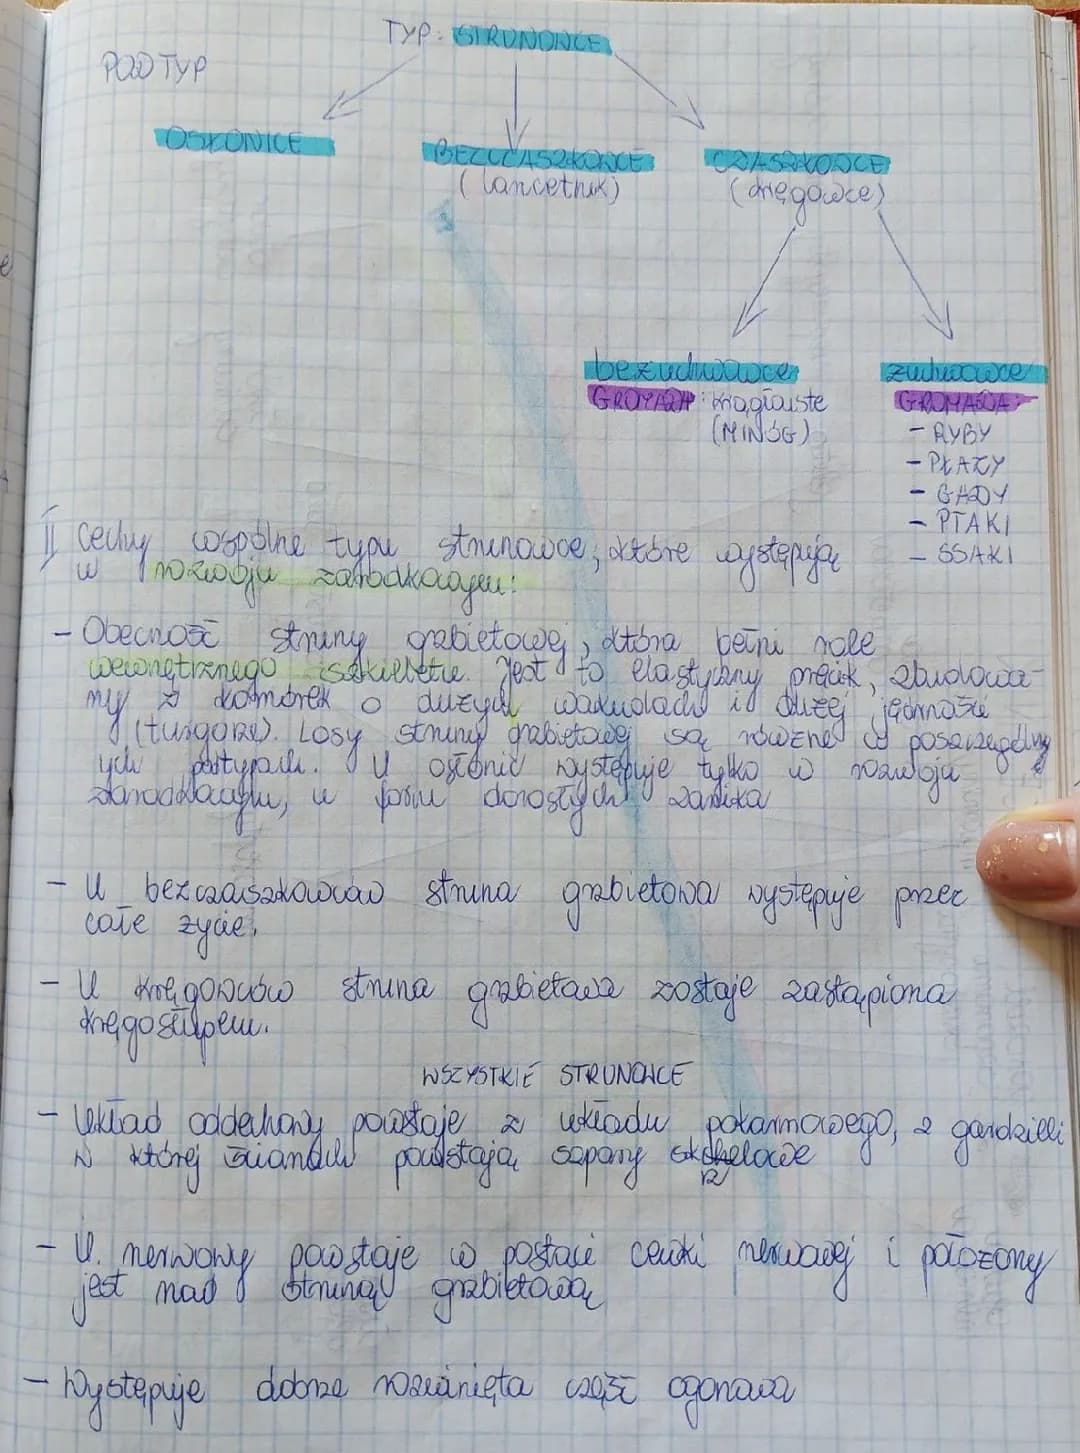 TYP: STRUNOWCE
PODTYP
OSŁONICE
BEZCZASZKOWCE
CZASZKOWCE
(lancetnik)
(kręgowce)
bezżuchwowce
żuchwowce
GROMADA: krągłouste
GROMADA:
(MINÓG)
- RYBY
- PŁAZY
- GADY
- PTAKI
- SSAKI
II Cechy wspólne typu strunowce, które występują
w rozwoju zarodkowym:
- Obecność struny grzbietowej, która pełni role
wewnętrznego szkieletu. Jest to elastyczny pręcik, zbudowa-
ny z komórek o dużych wakuolach i dużej jędrności
(turgorze). Losy struny grzbietowej są różne w poszczególny
ych podtypach. U osłonic występuje tylko w rozwoju
zarodkowym, u form dorosłych zanika
- U bezczaszkowców struna grzbietowa występuje przez
całe życie.
- U kręgowców struna grzbietowa zostaje zastąpiona
kręgosłupem.
WSZYSTKIE STRUNOWCE
- Układ oddechowy powstaje z układu pokarmowego, z gardzieli
w której ścianach powstają szpary skrzelowe
- U. nerwowy powstaje w postaci cewki nerwowej i położony
jest nad struną grzbietową
- Występuje dobrze rozwinięta część ogonowa